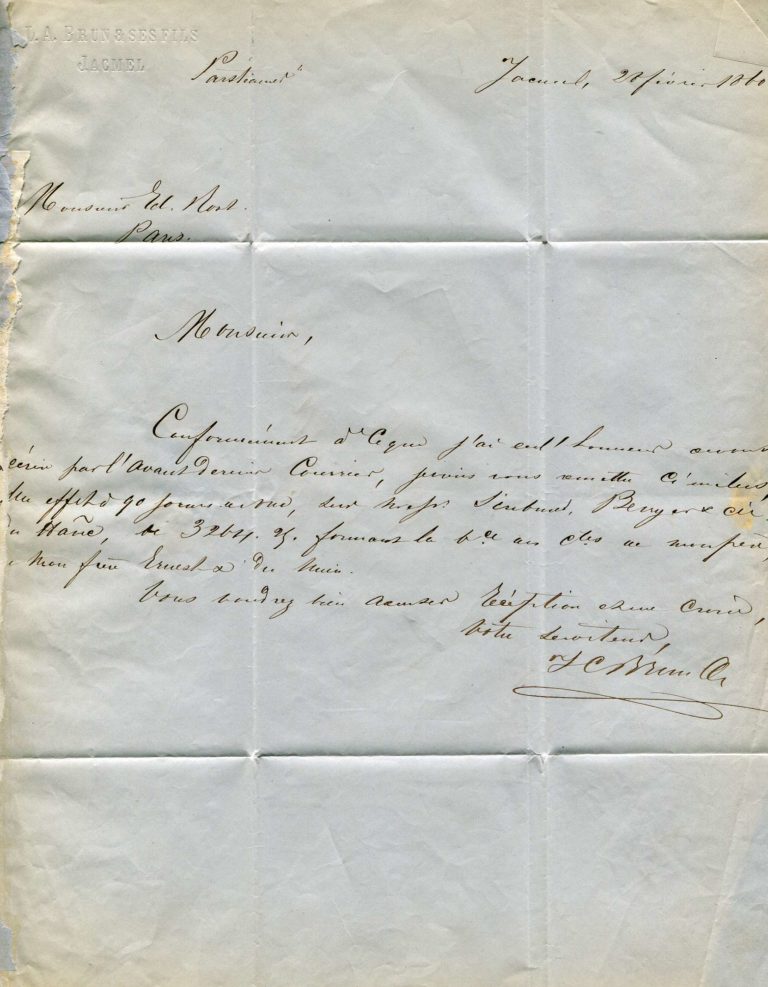 L. A. BRUN & SES FILS
JACMEL
"Par steamer"
Jacmel, 28 février 1860
Monsieur Ed. Nort.
Paris.
Monsieur,
Conformément à ce que j'ai eu l'honneur
écrire par l'avant dernier Courrier, je vous remette ci inclus,
Un effet à 90 jours de vue, sur Mess.rs Beuyer & Cie
du Hâvre, de 3264. 25. formant la b.ce des c.tes de mon père,
mon frère Ernest & du mien.
Vous voudrez bien accuser Réception & me croire,
Votre serviteur,
J C Brun